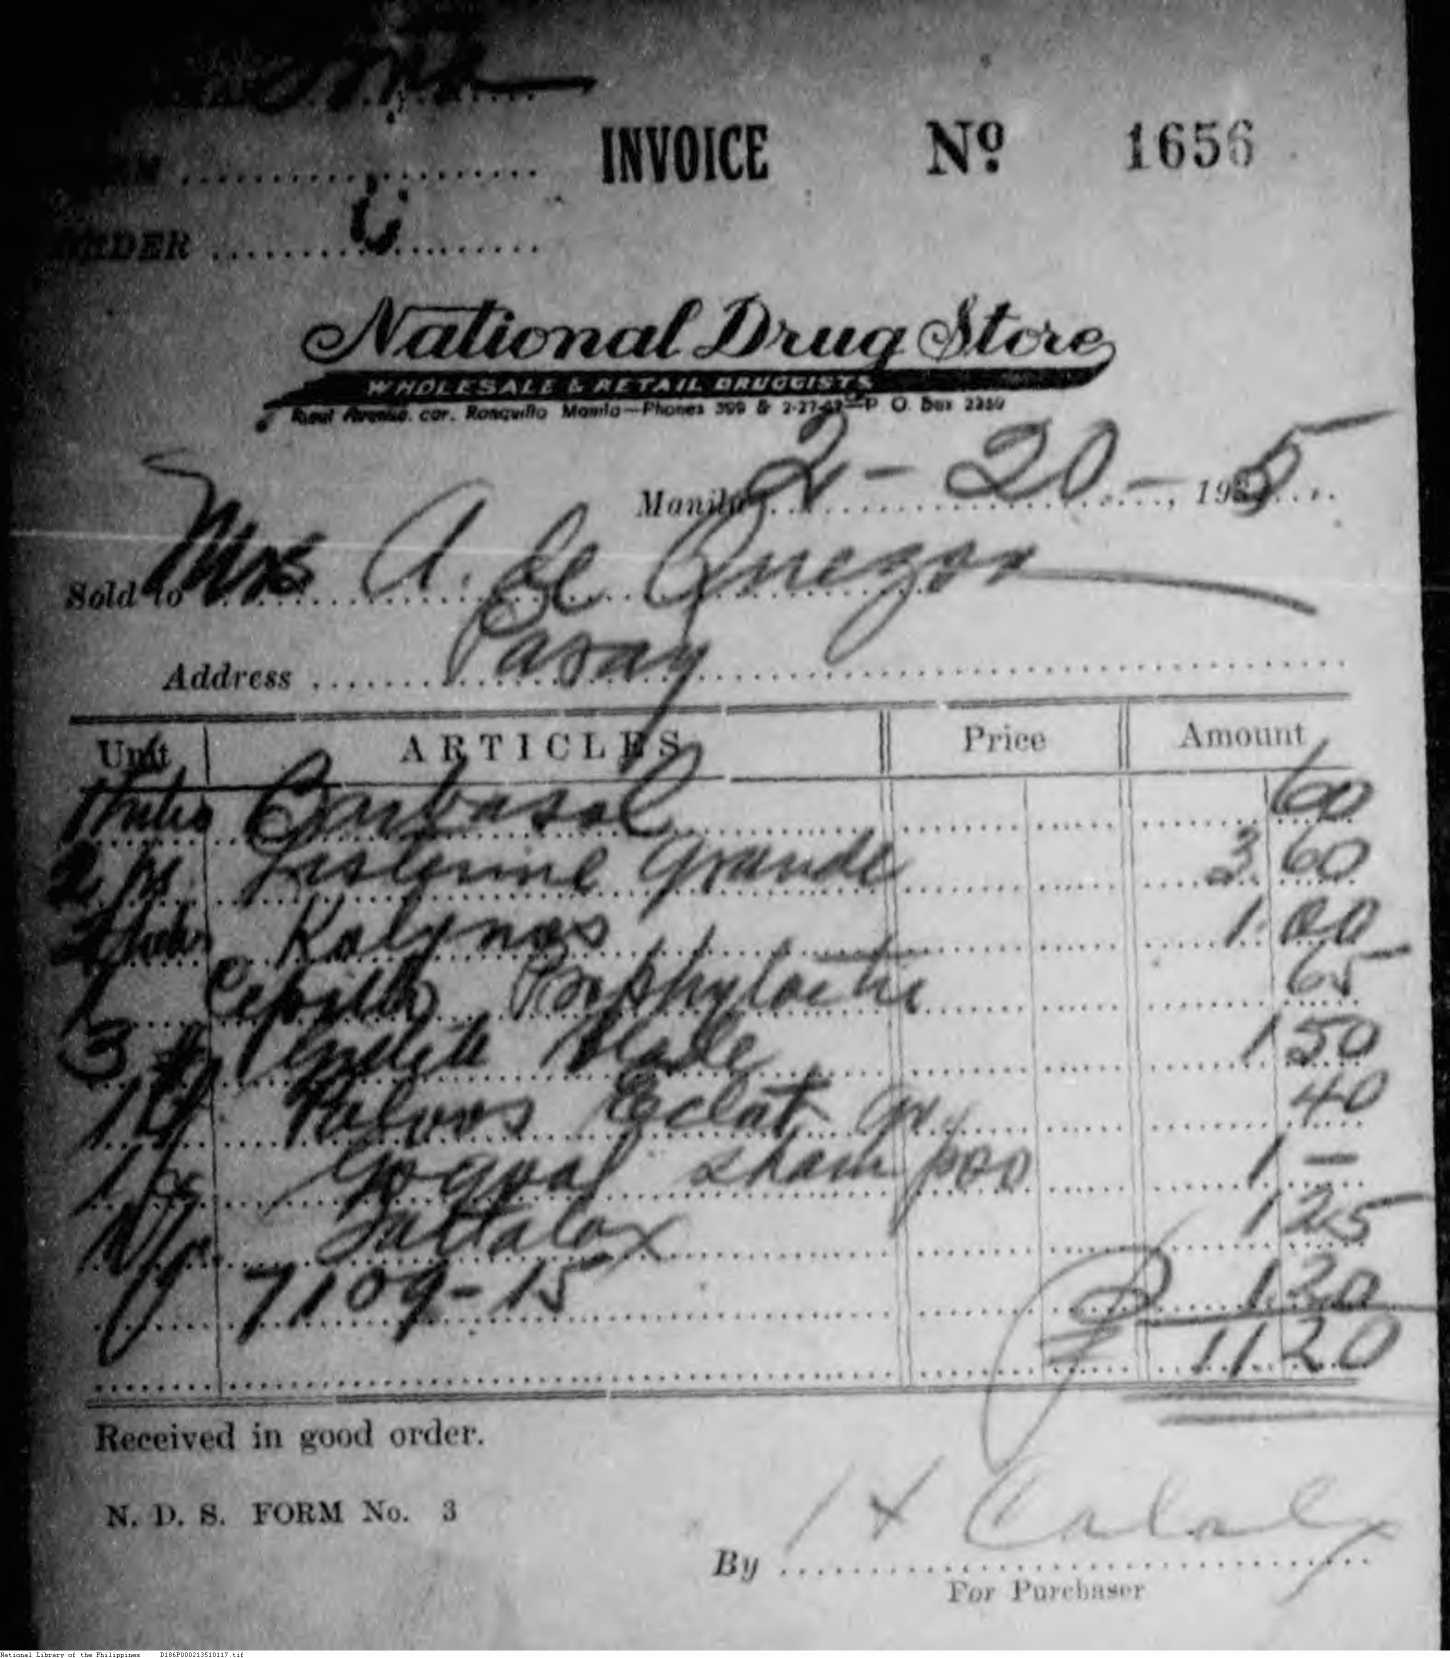 INVOICE Nº 1656
ORDER
National Drug Store
WHOLESALE & RETAIL DRUGGISTS
Rizal Avenue. cor. Ronquillo Manila—Phones 399 & 2-27-62—P. O. Box 2250
Manila 2-20-, 1935
Sold to Mrs A. de Quezon
Address Pasay
Unit ARTICLES Price Amount
1 tube Barbasol 60
2 Listerine Grande 3.60
2 tubes Kolynos 1.00
1 Cepillo Prophylactic 65
3 Blade 1 50
1 Polvos Eclat Gr. 40
1 shampoo 1 —
1 25
7109-15 1.20
₱ 11.20
Received in good order.
N. D. S. FORM No. 3
By
For Purchaser
National Library of the Philippines D186P000213510117.tif